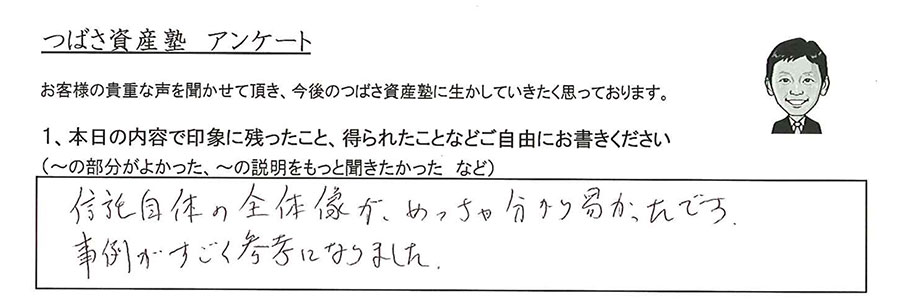 つばさ資産塾　アンケート
お客様の貴重な声を聞かせて頂き、今後のつばさ資産塾に生かしていきたく思っております。
1、本日の内容で印象に残ったこと、得られたことなどご自由にお書きください
（～の部分がよかった、～の説明をもっと聞きたかった　など）
信託自体の全体像が、めっちゃ分かり易かったです.
事例がすごく参考になりました.